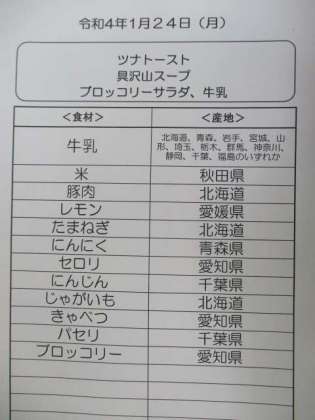 令和4年1月24日（月）
ツナトースト
具沢山スープ
ブロッコリーサラダ、牛乳
＜食材＞ ＜産地＞
牛乳 北海道、青森、岩手、宮城、山
形、埼玉、栃木、群馬、神奈川、
静岡、千葉、福島のいずれか
米 秋田県
豚肉 北海道
レモン 愛媛県
たまねぎ 北海道
にんにく 青森県
セロリ 愛知県
にんじん 千葉県
じゃがいも 北海道
きゃべつ 愛知県
パセリ 千葉県
ブロッコリー 愛知県